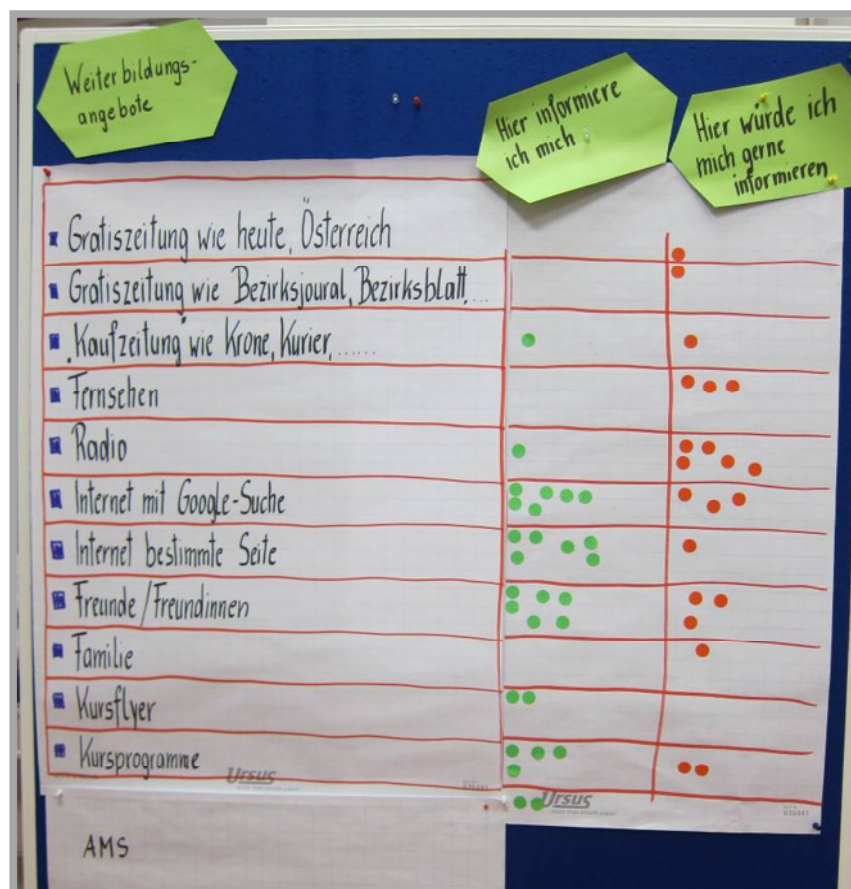 Weiterbildungs-
angebote
Hier informiere
ich mich
Hier würde ich
mich gerne
informieren
Gratiszeitung wie heute, Österreich
Gratiszeitung wie Bezirksjoural, Bezirksblatt, ...
Kaufzeitung wie Krone, Kurier, ......
Fernsehen
Radio
Internet mit Google-Suche
Internet bestimmte Seite
Freunde/Freundinnen
Familie
Kursflyer
Kursprogramme
Ursus
Ursus
AMS